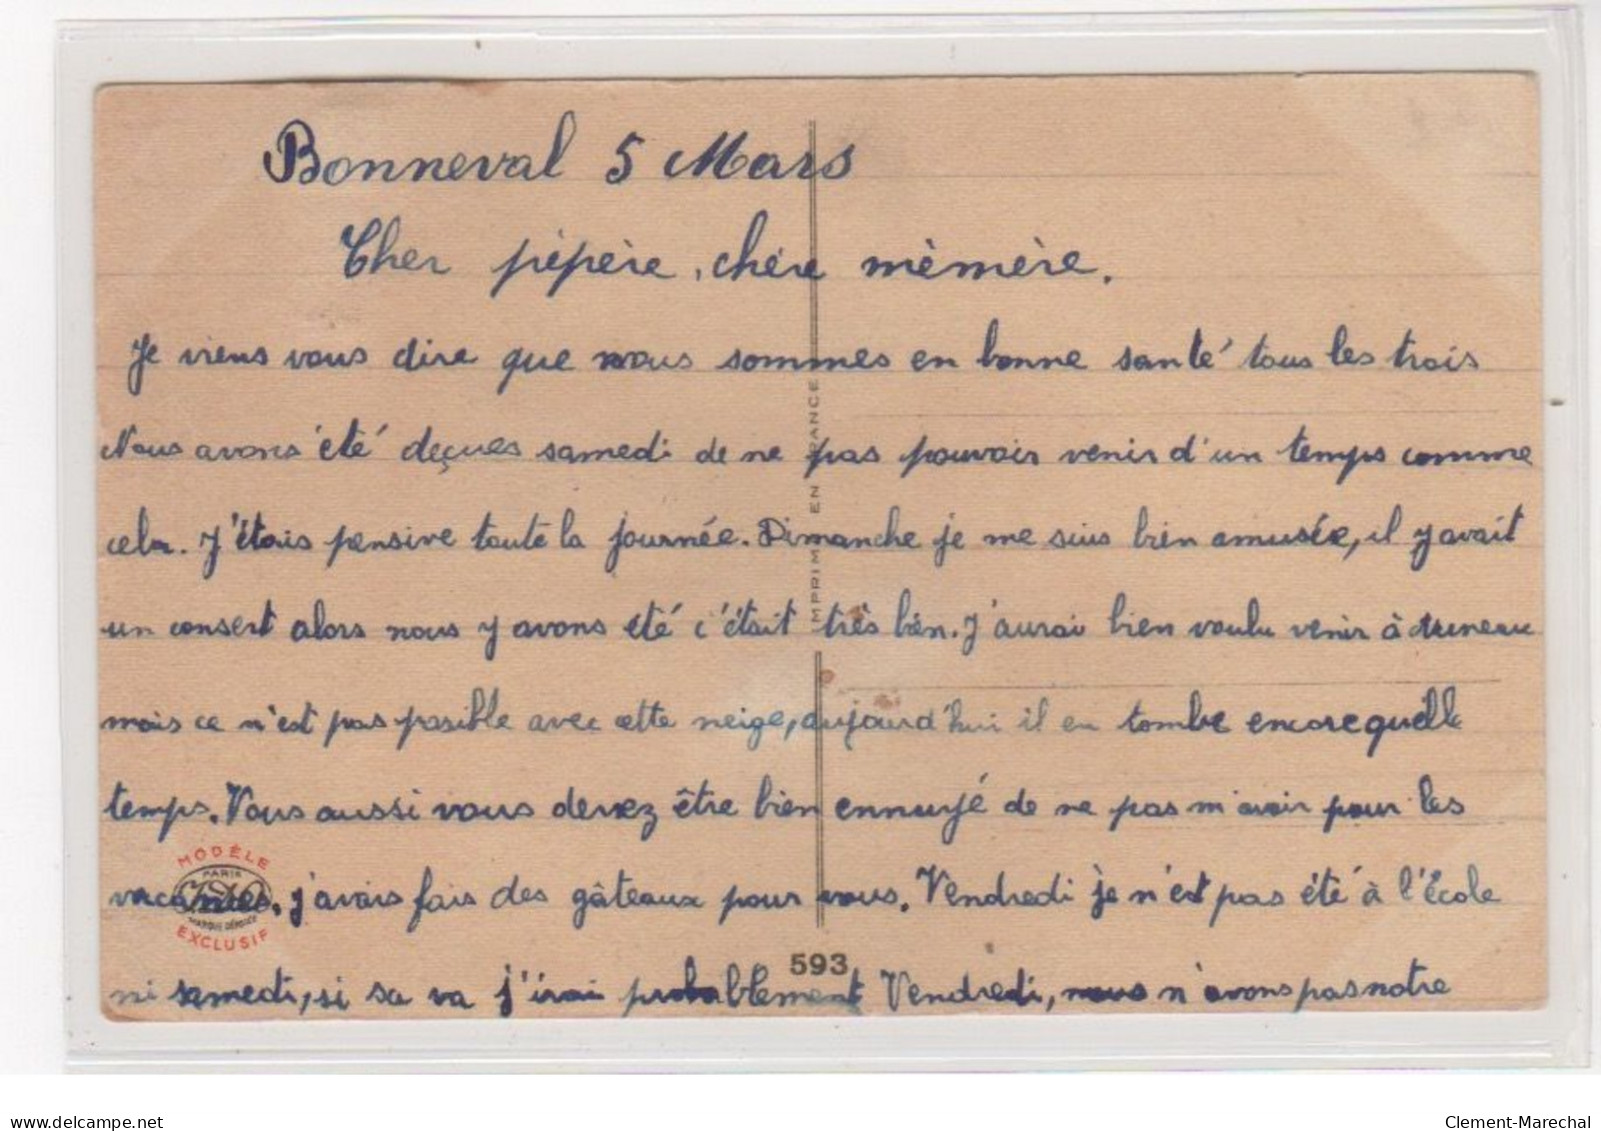 Bonneval 5 Mars
Cher pèpère, chère mèmère.
Je viens vous dire que nous sommes en bonne santé tous les trois
Nous avons été deçues samedi de ne pas pouvoir venir d'un temps comme
cela. J'étais pensive toute la journée. Dimanche je me suis bien amusée, il y avait
un consert alors nous y avons été c'était très bien. J'aurai bien voulu venir à
mais ce n'est pas possible avec cette neige, aujourd'hui il en tombe encore quelle
temps. Vous aussi vous devez être bien ennuyé de ne pas m'avoir pour les
vacances, j'avais fais des gâteaux pour vous. Vendredi je n'est pas été à l'École
ni samedi, si sa va j'irai probablement Vendredi, nous n'avons pas notre
IMPRIMÉ EN FRANCE
MODÈLE
PARIS
MARQUE DÉPOSÉE
EXCLUSIF
593
www.delcampe.net
Clement-Marechal